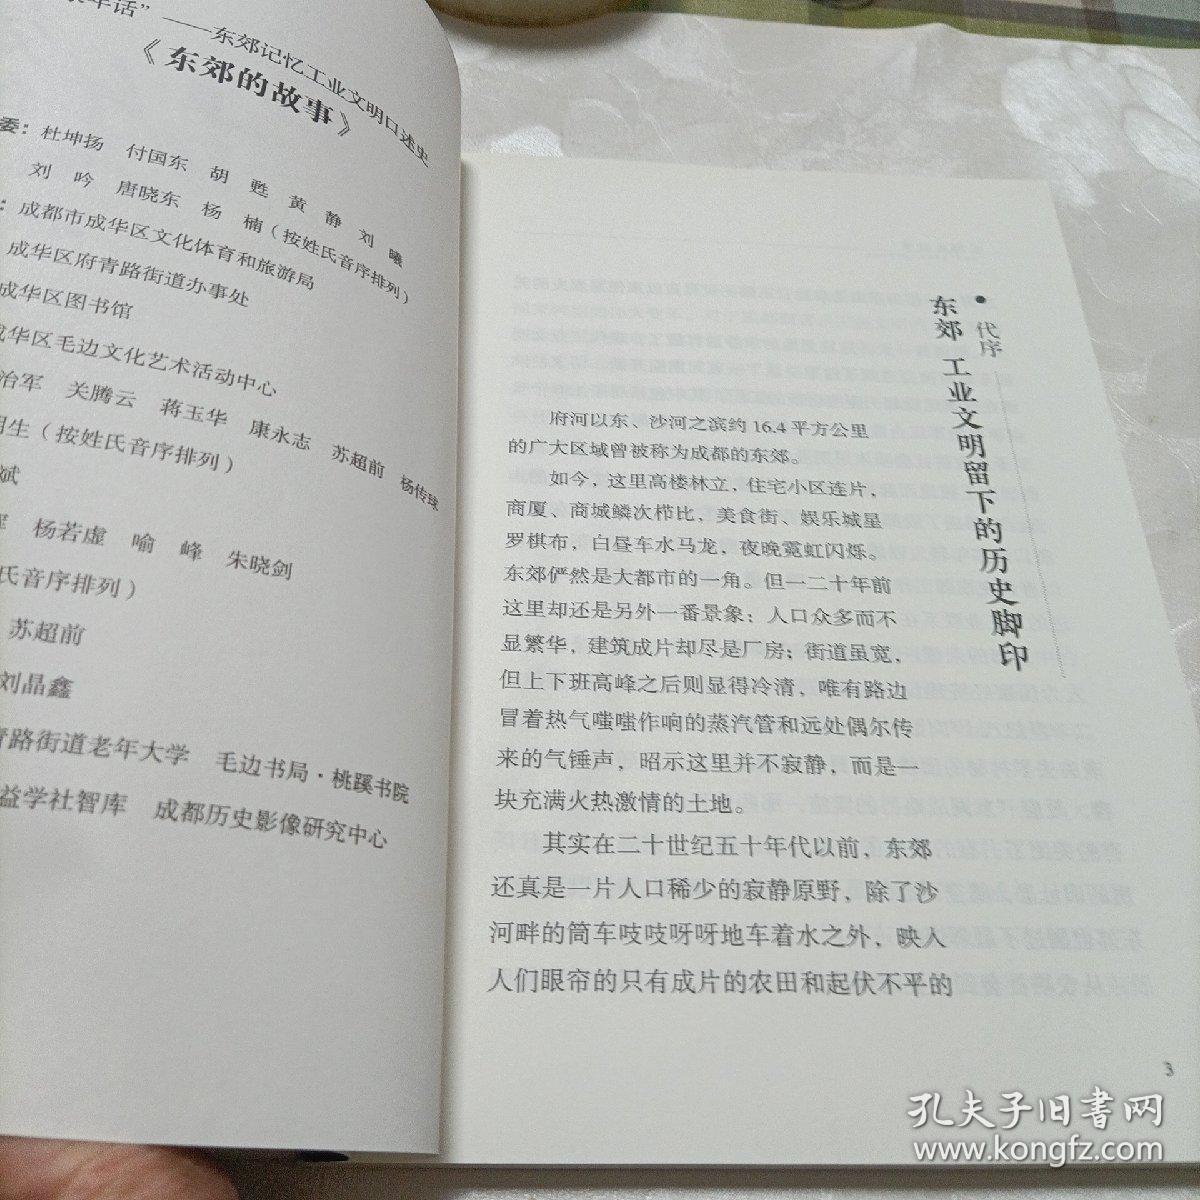 年话”——东郊记忆工业文明口述史
《东郊的故事》
委：杜坤扬 付国东 胡 甦 黄 静 刘 曦
刘 吟 唐晓东 杨 楠（按姓氏音序排列）
：成都市成华区文化体育和旅游局
成华区府青路街道办事处
成华区图书馆
成华区毛边文化艺术活动中心
治军 关腾云 蒋玉华 康永志 苏超前 杨传球
生（按姓氏音序排列）
斌
杨若虚 喻 峰 朱晓剑
氏音序排列）
苏超前
刘晶鑫
青路街道老年大学 毛边书局·桃蹊书院
益学社智库 成都历史影像研究中心
• 代序
东郊 工业文明留下的历史脚印
府河以东、沙河之滨约 16.4 平方公里
的广大区域曾被称为成都的东郊。
如今，这里高楼林立，住宅小区连片，
商厦、商城鳞次栉比，美食街、娱乐城星
罗棋布，白昼车水马龙，夜晚霓虹闪烁。
东郊俨然是大都市的一角。但一二十年前
这里却还是另外一番景象：人口众多而不
显繁华，建筑成片却尽是厂房；街道虽宽，
但上下班高峰之后则显得冷清，唯有路边
冒着热气嗤嗤作响的蒸汽管和远处偶尔传
来的气锤声，昭示这里并不寂静，而是一
块充满火热激情的土地。
其实在二十世纪五十年代以前，东郊
还真是一片人口稀少的寂静原野，除了沙
河畔的筒车吱吱呀呀地车着水之外，映入
人们眼帘的只有成片的农田和起伏不平的
3
孔夫子旧书网
www.kongfz.com